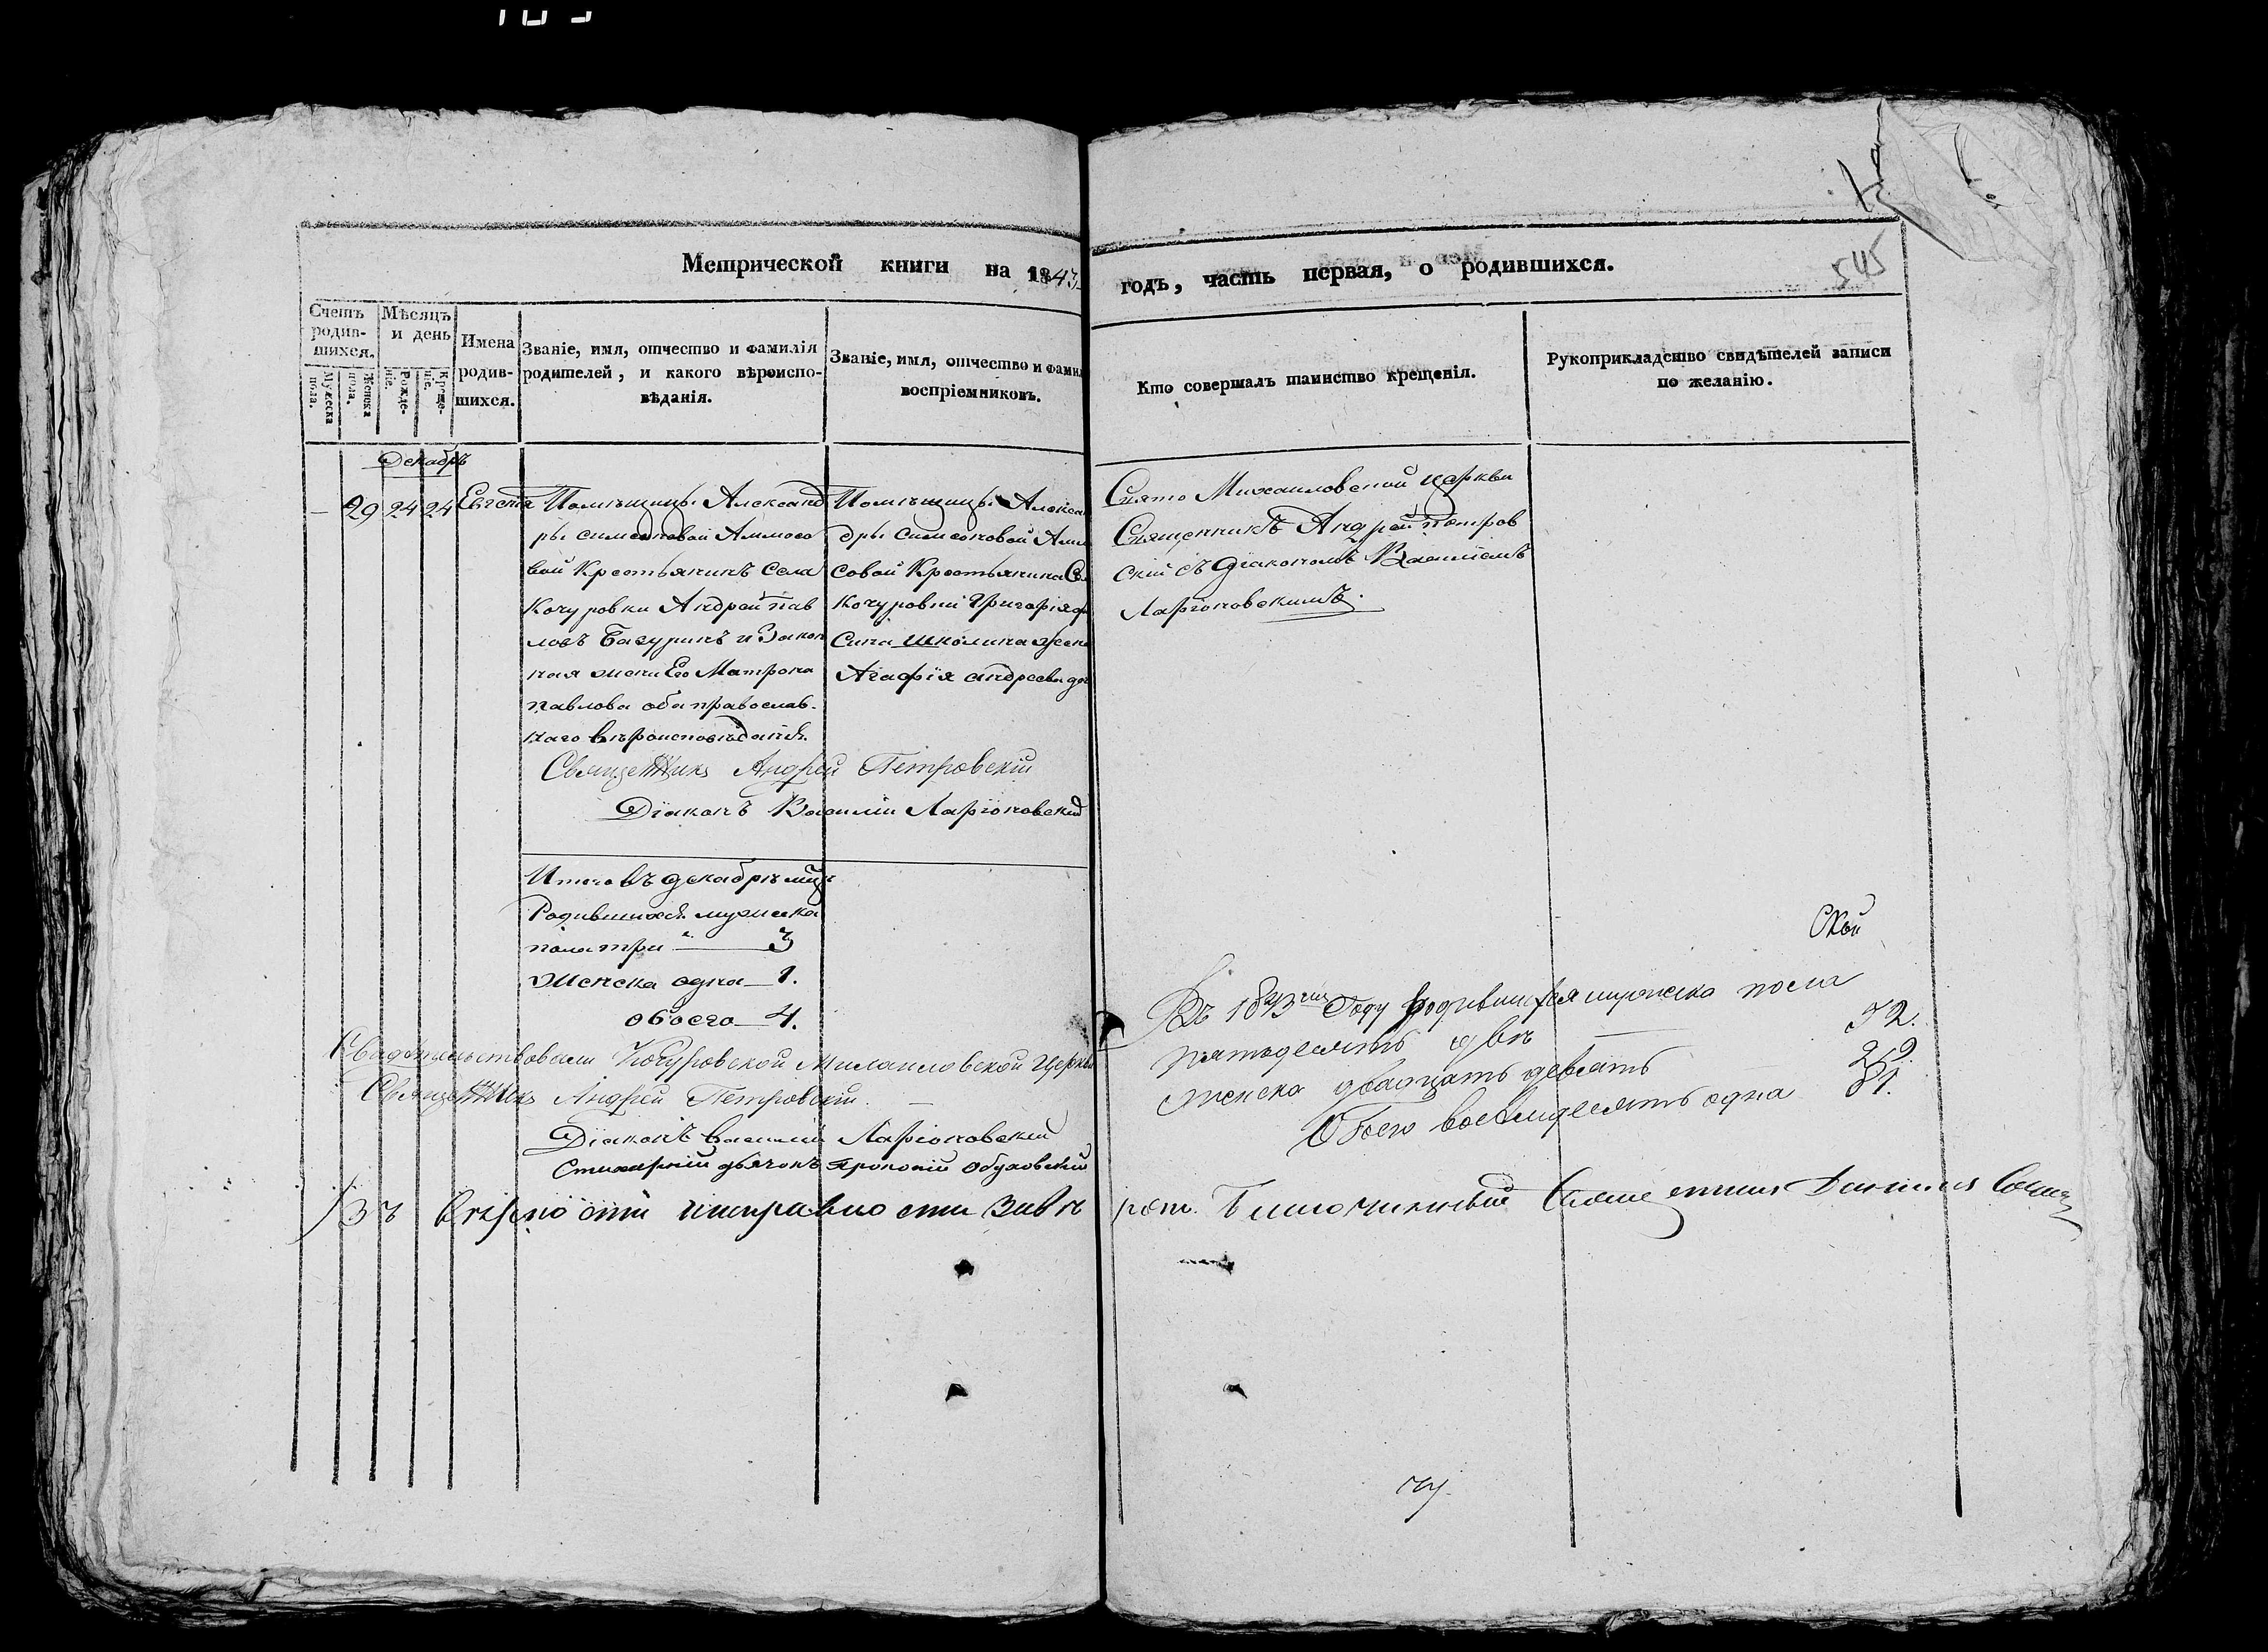 Метрической книги на 1843
годъ, часть первая, о родившихся.
545
Счетъ родив-шихся.
Мужеска пола.
Женска пола.
Мѣсяцъ и день
Рожде-нiе.
Креще-нiе.
Имена родив-шихся.
Званiе, имя, отчество и фамилiя
родителей, и какого вѣроиспо-
вѣданiя.
Званiе, имя, отчество и фамил
воспрiемниковъ.
Кто совершалъ таинство крещенiя.
Рукоприкладство свидѣтелей записи
по желанiю.
Декабръ
— 29 24 24 Евгенiя
Помѣщицы Александ
ры Симеоновой Аммосо
вой Крестьянинъ Села
Кочуровки Андрей Пав
ловъ Багуринъ и Закон
ная жена Его Матрона
Павлова оба православ-
наго вѣроисповѣданiя.
Помѣщицы Алексан
дры Симеоновой Амм
совой Крестьянина Се
Кочуровки Григорiя
Сина Школина жена
Агафiя Андреева доч
Свято Михаиловской церкви
Священникъ Андрей Петров
скiй съ Дiакономъ Василiемъ
Ларiоновскимъ.
Священникъ Андрей Петровскiй
Дiаконъ Василiй Ларiоновскiй
Итого въ декабрѣ мцѣ
Родившихся мужеска
пола три — 3
женска одна — 1.
обоего — 4.
Свидѣтельствовали Кочуровской Михаиловской Церкви
Священникъ Андрей Петровскiй
Дiаконъ Василiй Ларiоновскiй
Стихарный дьячокъ Прокопiй Обуховскiй
Въ 1843 Году Родившихся мужеска пола
пятьдесятъ двѣ — 52.
женска двадцать девять 29.
Обоего восемдесятъ одна 81.
Въ вѣрности и исправности завѣ
рено. Благочинный Священникъ